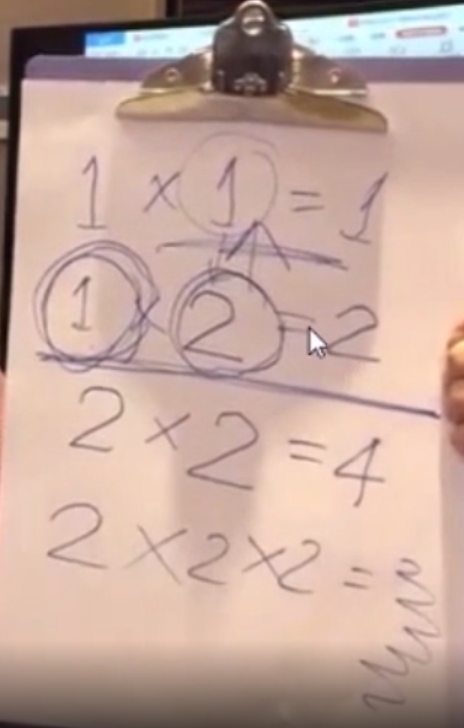 1 × 1 = 1
1 × 2 = 2
2 × 2 = 4
2 × 2 × 2 =